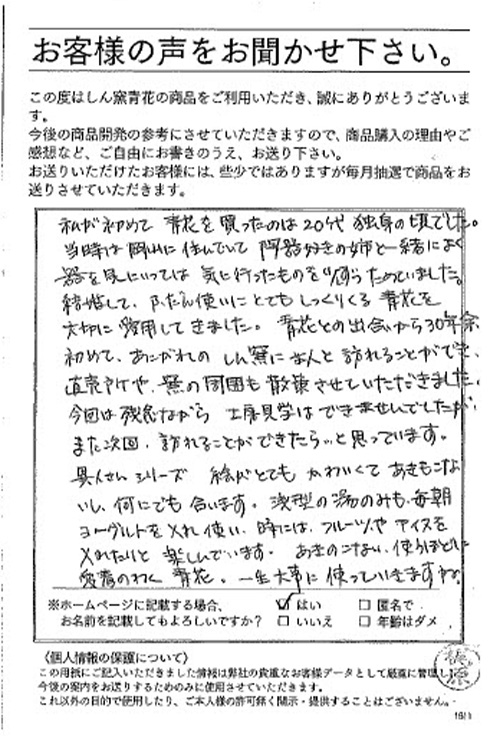 お客様の声をお聞かせ下さい。
この度はしん窯青花の商品をご利用いただき、誠にありがとうございま
す。
今後の商品開発の参考にさせていただきますので、商品購入の理由やご
感想など、ご自由にお書きのうえ、お送り下さい。
お送りいただけたお客様には、些少ではありますが毎月抽選で商品をお
送りさせていただきます。
私が初めて 青花を買ったのは20代 独身の頃でした。
当時は岡山に住んでいて 陶器好きの姉と一緒によく
器を見にいっては 気に行ったものを
結婚して、ふだん使いにとてもしっくりくる 青花を
大切に愛用してきました。青花との出会いから30年余
初めて、あこがれの しん窯に主人と訪れることができ、
直売所や、窯の周囲も散策させていただきました。
今回は残念ながら 工房見学はできませんでしたが、
また次回、訪れることができたら。。と思っています。
異人さんシリーズ 絵がとても かわいくて あきもこな
いし、何にでも合います。浅型の湯のみも、毎朝
ヨーグルトを入れ使い、時には、フルーツや アイスを
入れたりと 楽しんでいます。あきのこない、使うほどに
愛着のわく 青花。一生大事に使っていきますね
※ホームページに記載する場合、 ☑ はい □ 匿名で
お名前を記載してもよろしいですか? □ いいえ □ 年齢はダメ
〈個人情報の保護について〉
この用紙にご記入いただきました情報は弊社の貴重なお客様データとして厳重に管理し
今後の案内をお送りするためのみに使用させていただきます。
これ以外の目的で使用したり、ご本人様の許可無く開示・提供することはございません。